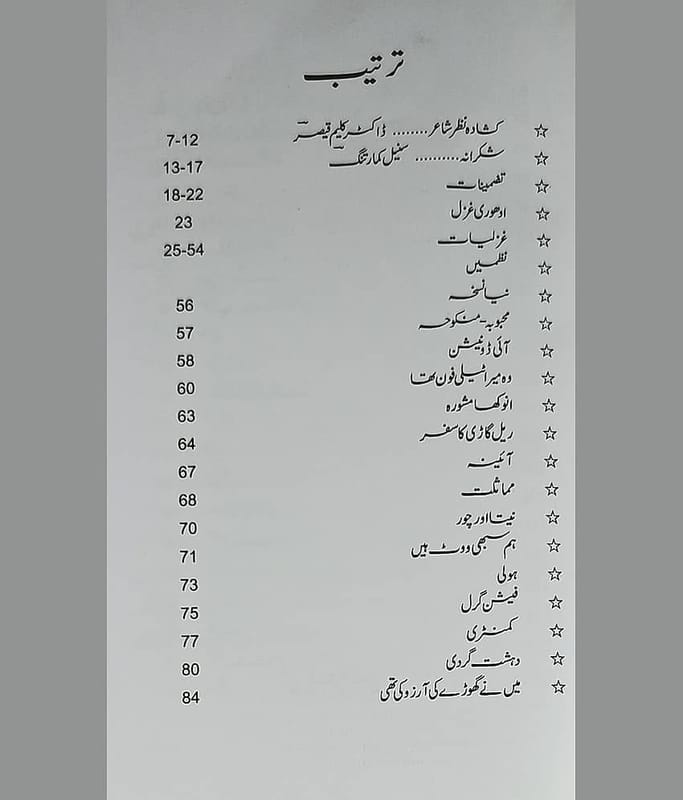 ترتیب
☆ کشادہ نظر شاعر ........ ڈاکٹر کلیم قیصر 7-12
☆ شکرانہ .......... سنیل کمار تنگ 13-17
☆ تضمینات 18-22
☆ ادھوری غزل 23
☆ غزلیات 25-54
☆ نظمیں
☆ نیا نسخہ 56
☆ محبوبہ-منکوحہ 57
☆ آئی ڈونیشن 58
☆ وہ میرا ٹیلی فون تھا 60
☆ انوکھا مشورہ 63
☆ ریل گاڑی کا سفر 64
☆ آئینہ 67
☆ مماثلت 68
☆ نیتا اور چور 70
☆ ہم سبھی ووٹ ہیں 71
☆ ہولی 73
☆ فیشن گرل 75
☆ کمنٹری 77
☆ دہشت گردی 80
☆ میں نے گھوڑے کی آرزو کی تھی 84